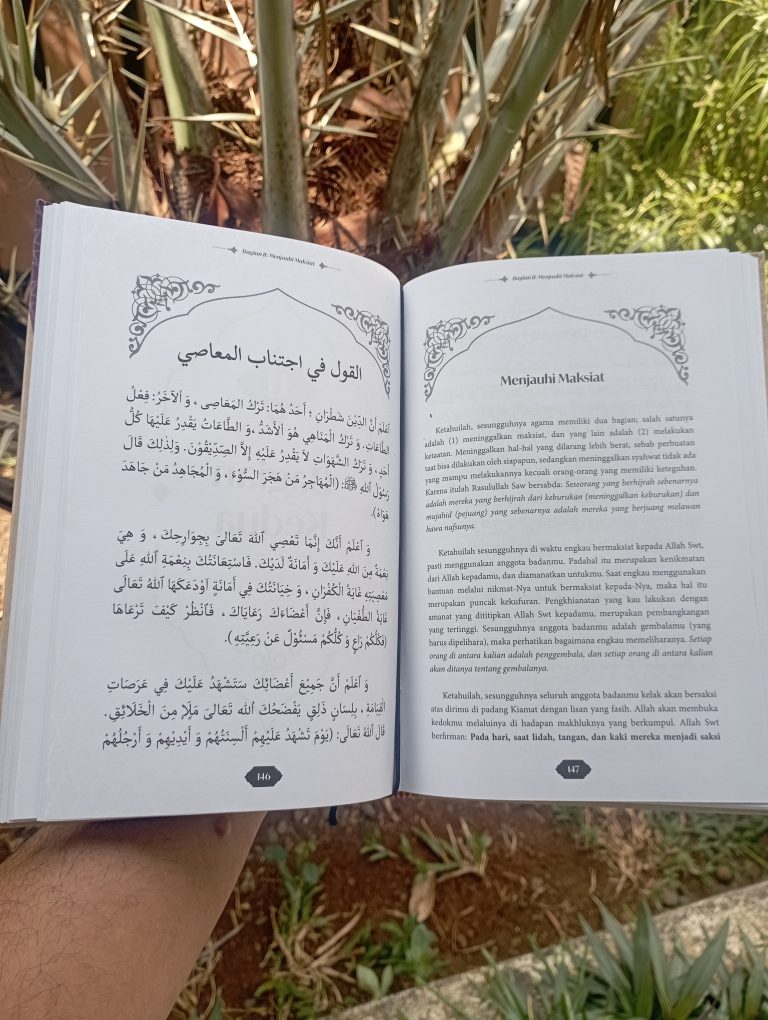 Bagian II: Menjauhi Maksiat
القول في اجتناب المعاصي
اَعْلَمْ أَنَّ الدِّيْنَ شَطْرَانِ ؛ أَحَدُ هُمَا: تَرْكُ المَعَاصِى ، وَ ٱلآخَرُ: فِعْلُ
الطَّاعَاتِ. وَ تَرْكُ المَنَاهِي هُوَ ٱلأَشَدُّ ،وَ الطَّاعَاتُ يَقْدِرُ عَلَيْهَا كُلُّ
أَحَدٍ ، وَ تَرْكُ الشَّهَوَاتِ لاَ يَقْدِرُ عَلَيْهِ إِلاَّ الصِّدِّيْقُوْنَ. وَلِذٰلِكَ قَالَ
رَسُوْلُ ٱللهِ ﷺ: (الْمُهَاجِرُ مَنْ هَجَرَ السُّوْءَ ، وَ الْمُجَاهِدُ مَنْ جَاهَدَ
هَوَاهُ).
وَ ٱعْلَمْ أَنَّكَ إِنَّمَا تَعْصِي ٱللهَ تَعَالَى بِجَوَارِحِكَ ، وَ هِيَ
نِعْمَةٌ مِنَ ٱللهِ عَلَيْكَ وَ أَمَانَةٌ لَدَيْكَ. فَاسْتِعَانَتُكَ بِنِعْمَةِ ٱللهِ عَلَى
مَعْصِيَتِهِ غَايَةُ الْكُفْرَانِ ، وَ خِيَانَتُكَ فِي أَمَانَةٍ أَوْدَعَكَهَا ٱللهُ تَعَالَى
غَايَةُ الطُّغْيَانِ ، فَإِنَّ أَعْضَاءَكَ رَعَايَاكَ ، فَٱنْظُرْ كَيْفَ تَرْعَاهَا
(فَكُلُّكُمْ رَاعٍ وَ كُلُّكُمْ مَسْئُوْلٌ عَنْ رَعِيَّتِهِ).
وَ ٱعْلَمْ أَنَّ جَمِيْعَ أَعْضَائِكَ سَتَشْهَدُ عَلَيْكَ فِي عَرَصَاتِ
الْقِيَامَةِ ، بِلِسَانٍ ذَلِقٍ يَفْضَحُكَ ٱلله تَعَالَى مَلَإٍ مِنَ الْخَلَائِقِ.
قَالَ ٱللهُ تَعَالَى: (يَوْمَ تَشْهَدُ عَلَيْهِمْ أَلْسِنَتُهُمْ وَ أَيْدِيْهِمْ وَ أَرْجُلُهُمْ
146
Bagian II: Menjauhi Maksiat
Menjauhi Maksiat
Ketahuilah, sesungguhnya agama memiliki dua bagian; salah satunya
adalah (1) meninggalkan maksiat, dan yang lain adalah (2) melakukan
ketaatan. Meninggalkan hal-hal yang dilarang lebih berat, sebab perbuatan
taat bisa dilakukan oleh siapapun, sedangkan meninggalkan syahwat tidak ada
yang mampu melakukannya kecuali orang-orang yang memiliki keteguhan.
Karena itulah Rasulullah Saw bersabda: Seseorang yang berhijrah sebenarnya
adalah mereka yang berhijrah dari keburukan (meninggalkan keburukan) dan
mujahid (pejuang) yang sebenarnya adalah mereka yang berjuang melawan
hawa nafsunya.
Ketahuilah sesungguhnya di waktu engkau bermaksiat kepada Allah Swt,
pasti menggunakan anggota badanmu. Padahal itu merupakan kenikmatan
dari Allah kepadamu, dan diamanatkan untukmu. Saat engkau menggunakan
bantuan melalui nikmat-Nya untuk bermaksiat kepada-Nya, maka hal itu
merupakan puncak kekufuran. Pengkhianatan yang kau lakukan dengan
amanat yang dititipkan Allah Swt kepadamu, merupakan pembangkangan
yang tertinggi. Sesungguhnya anggota badanmu adalah gembalamu (yang
harus dipelihara), maka perhatikan bagaimana engkau memeliharanya. Setiap
orang di antara kalian adalah penggembala, dan setiap orang di antara kalian
akan ditanya tentang gembalanya.
Ketahuilah, sesungguhnya seluruh anggota badanmu kelak akan bersaksi
atas dirimu di padang Kiamat dengan lisan yang fasih. Allah akan membuka
kedokmu melaluinya di hadapan makhluknya yang berkumpul. Allah Swt
berfirman: Pada hari, saat lidah, tangan, dan kaki mereka menjadi saksi
147